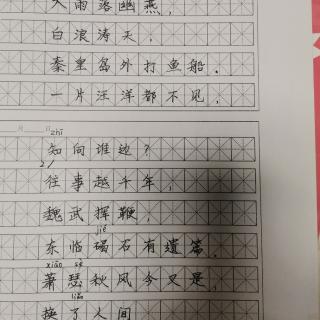 大雨落幽燕，
白浪涛天，
秦皇岛外打鱼船。
一片汪洋都不见，
zhī
知向谁边？
往事越千年，
魏武挥鞭，
jié
东临碣石有遗篇。
xiāo sè
萧瑟秋风今又是，
换了人间